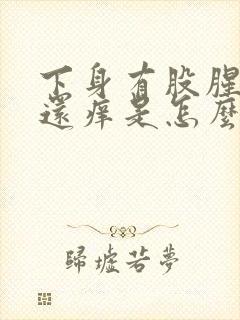 下身有股腥
還痒是怎麼
歸墟若夢